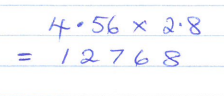 4·56 × 2·8
= 12768